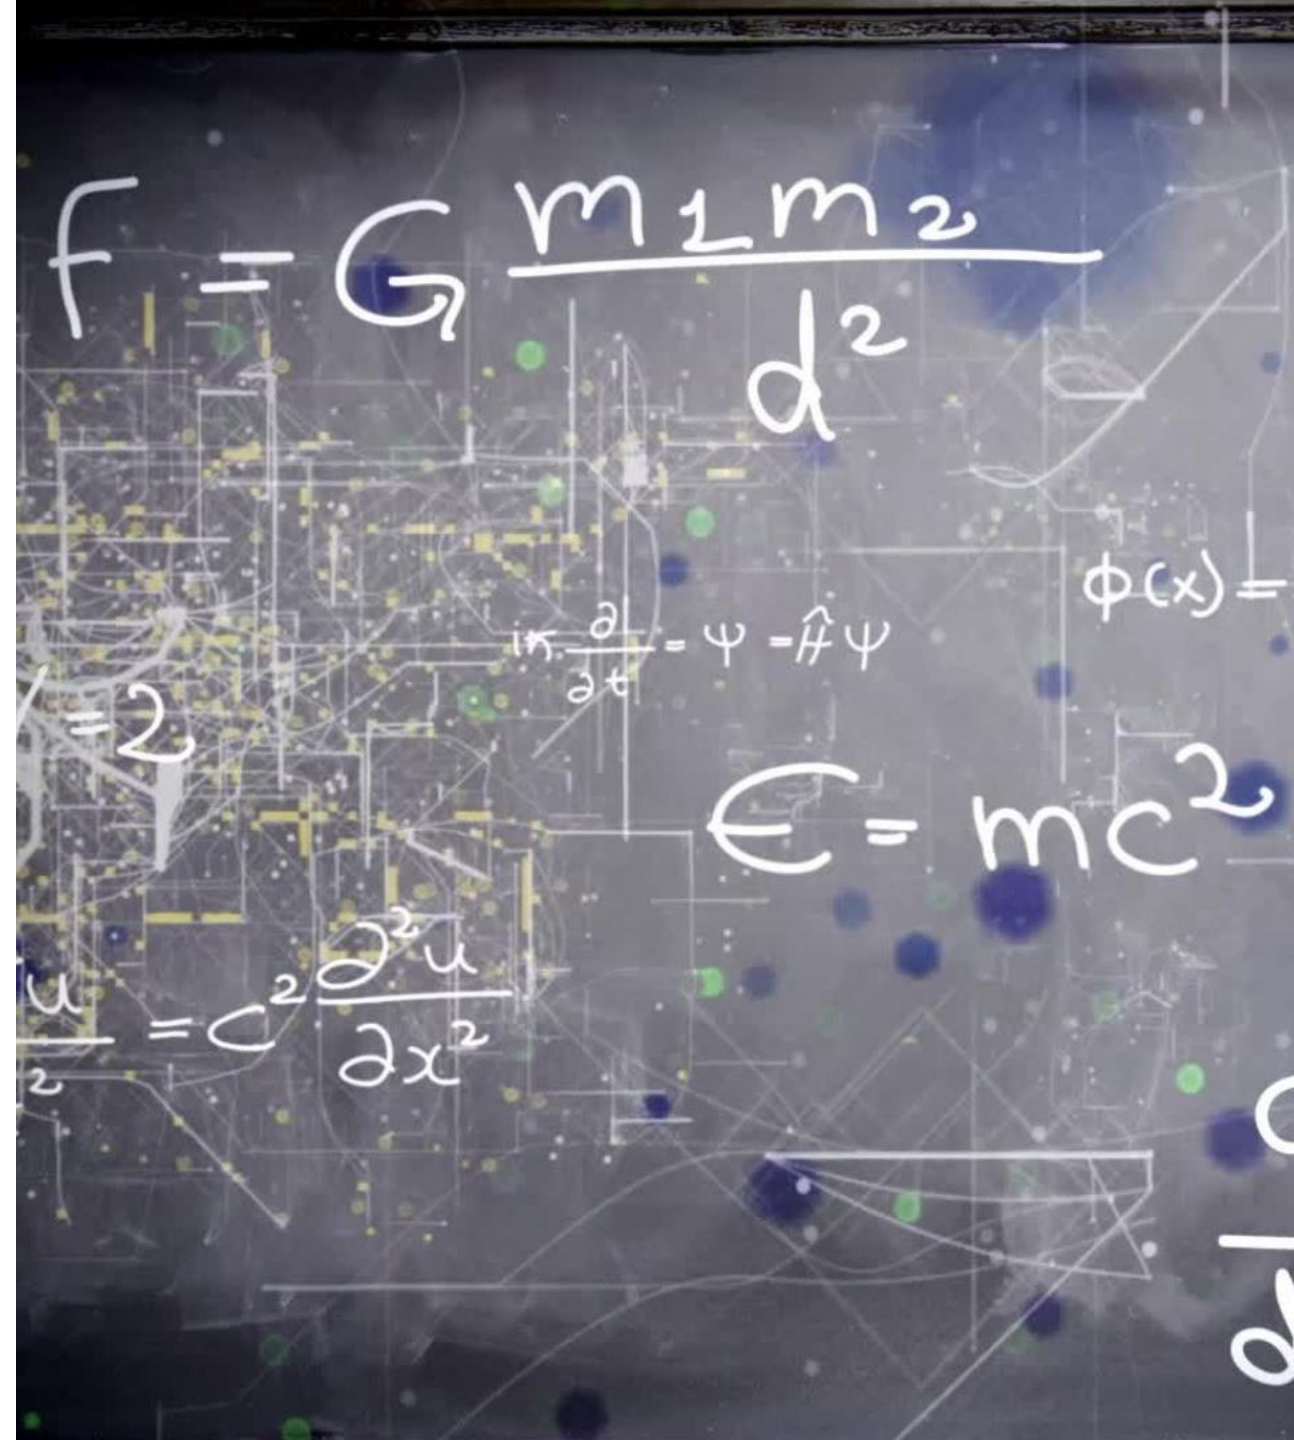 F = G m1 m2 / d²
φ(x) =
iħ ∂/∂t = Ψ = Ĥ Ψ
= 2
E = mc²
u / 2 = c² ∂²u / ∂x²
d